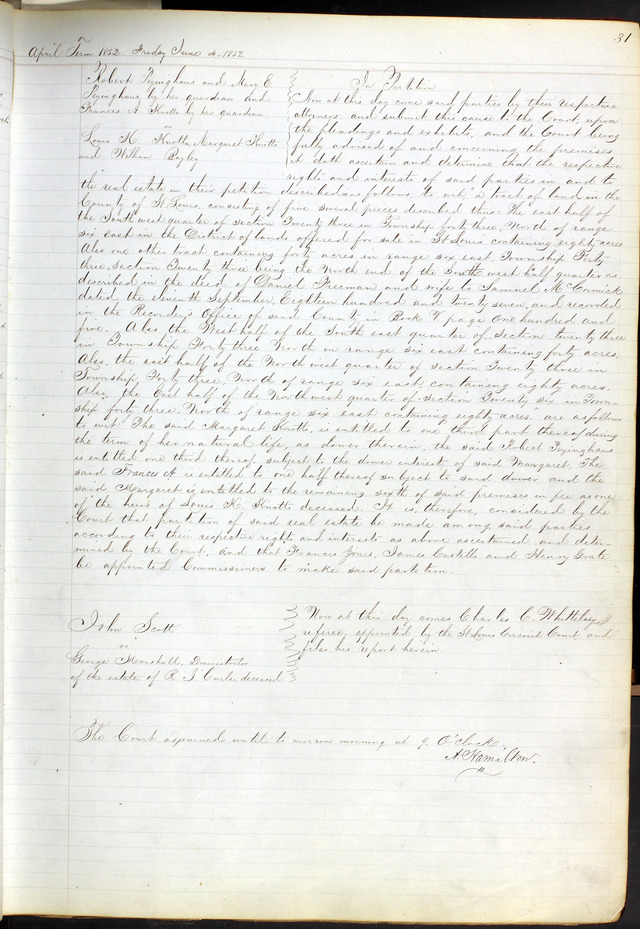 31
April Term 1852 Friday June 4. 1852
Robert Pezinghaus and Mary E
Pezinghaus, by her guardian and
Frances A Knotts by her guardian
vs
Louis K. Knotts, Margaret Knotts
and William Bayley
In Partition
Now at this day come said parties by their respective
attorneys and submit this cause to the Court, upon
the pleadings and exhibits, and the Court being
fully advised of and concerning the premises
it doth ascertain and determine that the respective
rights and interests of said parties in and to
the real estate in their petition described as follows to wit, "a tract of land in the
County of St Louis, consisting of five several pieces described thus: The east half of
the South west quarter of section Twenty three in Township forty three, North of range
six east in the District of lands offered for sale in St Louis containing eighty acres
Also one other tract containing forty acres in range six east, Township Forty
three, section Twenty three being the North end of the South west half quarter as
described in the deed of Daniel Freeman and wife to Samuel McCormick
dated the eleventh September, Eighteen hundred and twenty seven, and recorded
in the Recorder's Office of said County in Book V page One hundred and
five. Also the West half of the South east quarter of section twenty three
in Township Forty three North in range six east containing forty acres.
Also the east half of the North west quarter of section Twenty three in
Township Forty three, North of range six east, containing eighty acres.
Also, the East half of the Northwest quarter of section Twenty six in Town-
ship forty three, North of range six east containing eighty acres," are as follows
to wit: The said Margaret Knotts, is entitled to one third part thereof during
the term of her natural life, as dower therein, the said Robert Pezinghaus
is entitled one third thereof, subject to the dower interest of said Margaret. The
said Frances A. is entitled to one half thereof subject to said dower and the
said Margaret is entitled to the remaining sixth of said premises in fee as one
of the heirs of Louis K. Knotts deceased. It is, therefore, considered by the
Court that partition of said real estate be made among said parties
according to their respective right and interests as above ascertained and deter-
mined by the Court, and that Francis Jones, James Castello and Henry Grate
be appointed Commissioners to make said partition.
John Scott
vs
George Marshall, Administrator
of the estate of R. J. Carle, deceased
Now at this day comes Charles C. Whittelsey
referee, appointed by the St Louis Circuit Court and
files his report herein.
The Court adjourned until to morrow morning at 9. O'Clock.
A Hamilton.